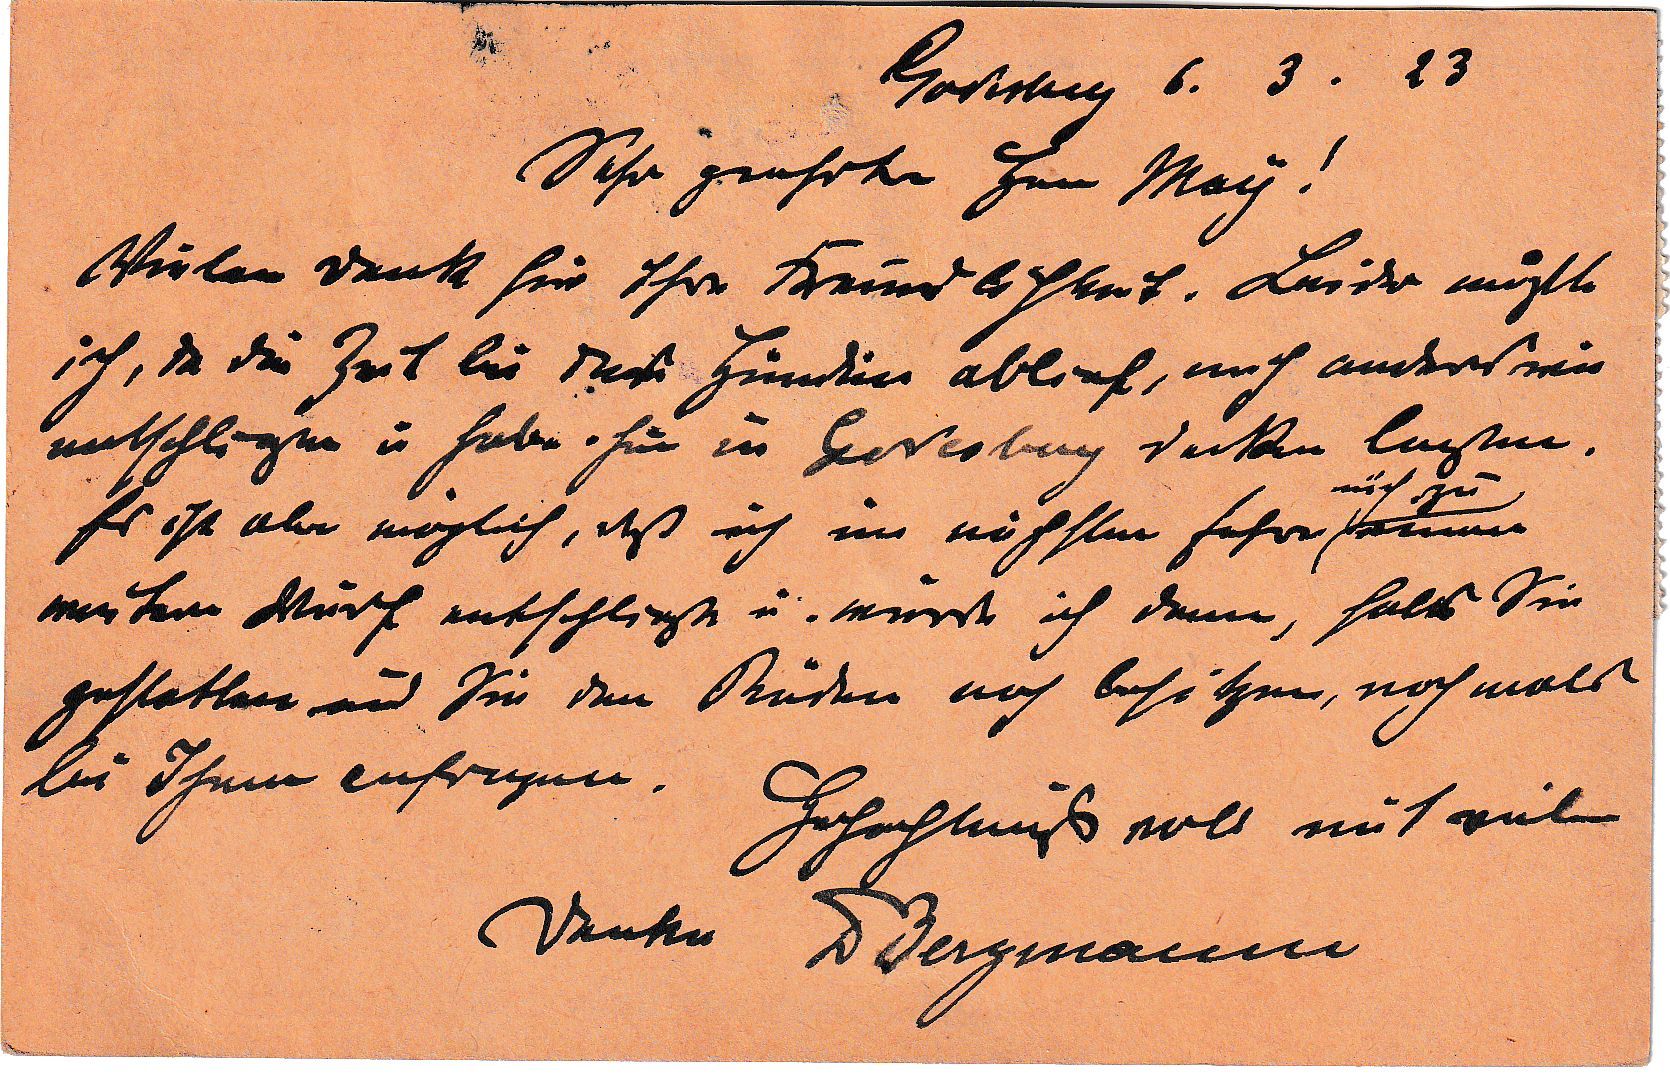 Godesberg 6. 3. 23
Sehr geehrter Herr May!
Vielen Dank für Ihre Freundlichkeit. Leider mußte
ich, da die Zeit bei der Hündin ablief, mich anderweitig
entschließen u. habe sie in Godesberg decken lassen.
Es ist aber möglich, daß ich im nächsten Jahre mich zu
weitem Wurf entschließe u. würde ich dann, falls Sie
gestatten und Sie den Rüden noch besitzen, nochmals
bei Ihnen anfragen.
Hochachtungsvoll mit vielem
Danke D Bergmann